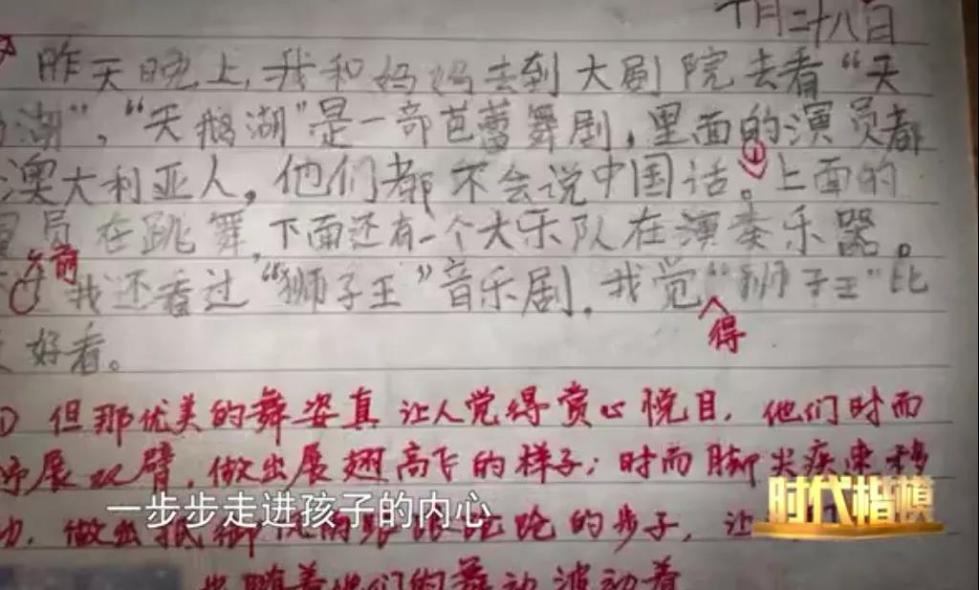 十月二十八日
昨天晚上,我和妈妈去到大剧院去看“天
湖”,“天鹅湖”是一部芭蕾舞剧,里面的演员都
澳大利亚人,他们都不会说中国话。上面的
①
员在跳舞,下面还有一个大乐队在演奏乐器。
前
我还看过“狮子王”音乐剧,我觉“狮子王”比
得
好看。
① 但那优美的舞姿真让人觉得赏心悦目,他们时而
展双臂,做出展翅高飞的样子;时而脚尖疾速移
一步步走进孩子的内心
时代楷模
做出 的步子,让
随着他们的舞动波动着